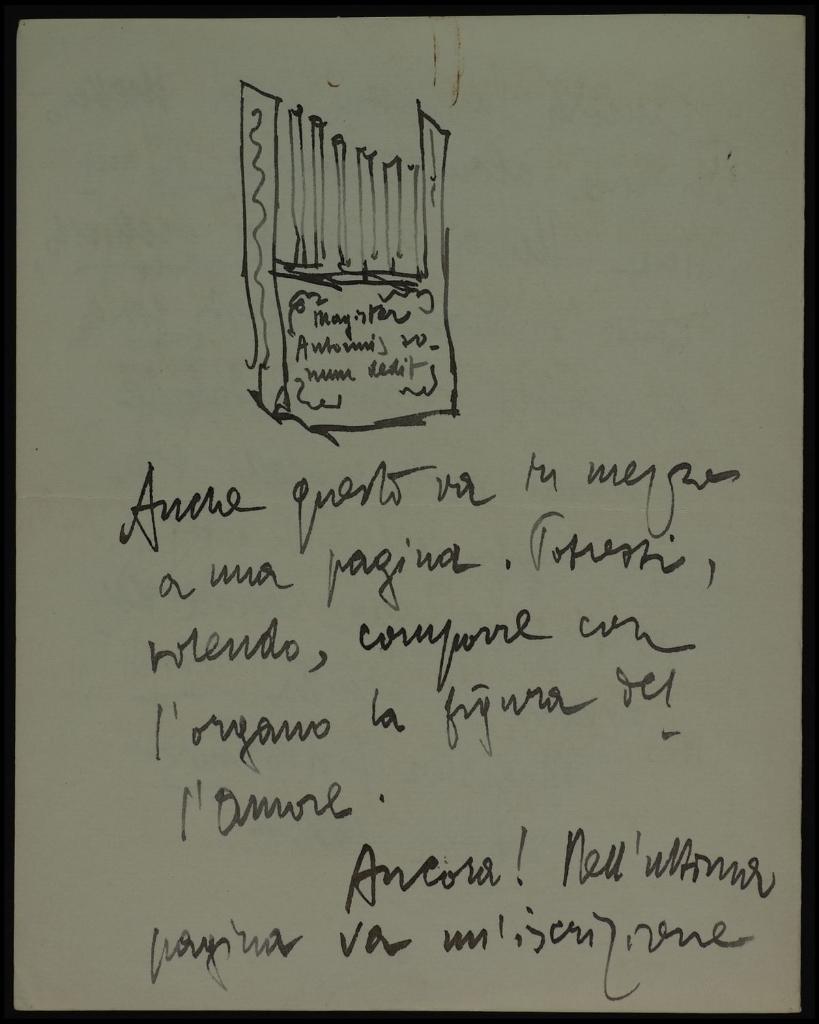 Magister
Antonius so-
num dedit
Anche questo va in mezzo
a una pagina. Potresti,
volendo, comporre con
l'organo la figura del-
l'amore.
Ancora! Nell'ultima
pagina va un'iscrizione